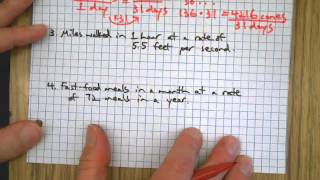 1 day 31 days
(36·31) = 4216 cones
31 days
3. Miles walked in 1 hour at a rate of
5.5 feet per second.
4. Fast-food meals in a month at a rate
of 72 meals in a year.